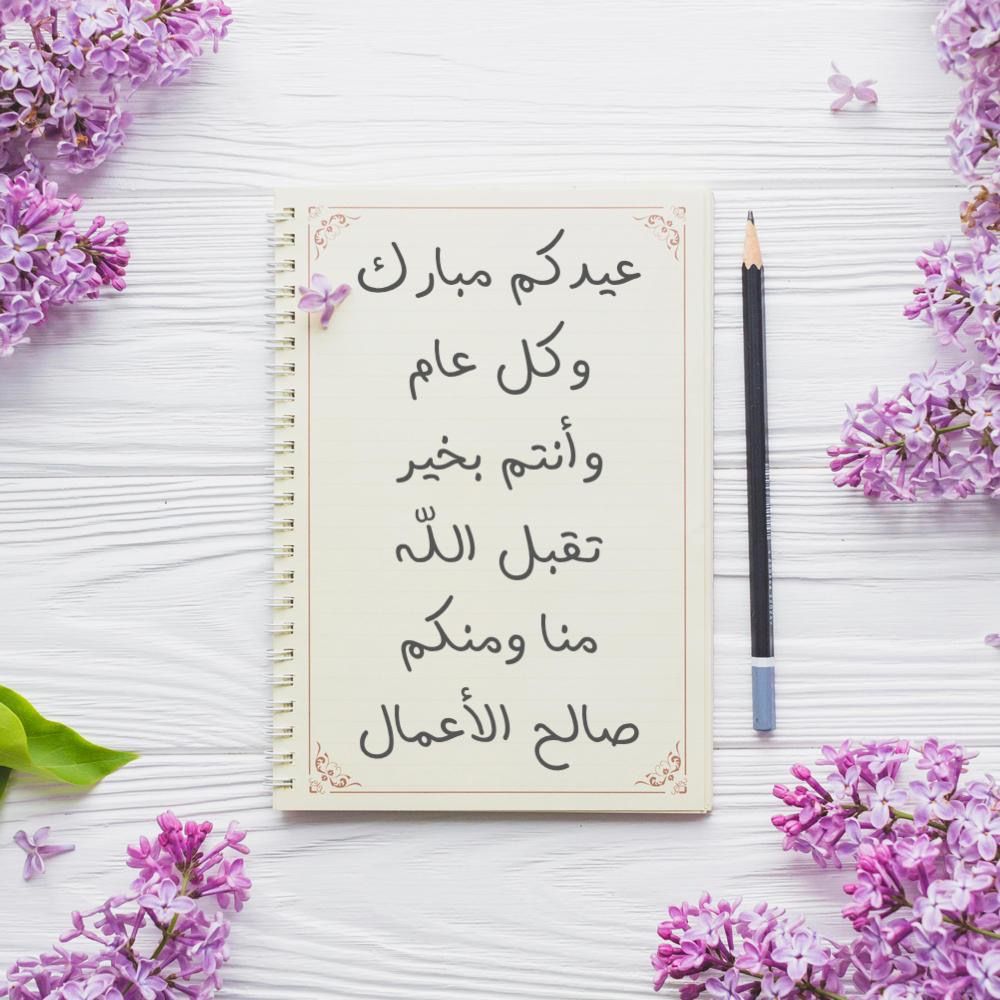 عيدكم مبارك
وكل عام
وأنتم بخير
تقبل اللّه
منا ومنكم
صالح الأعمال